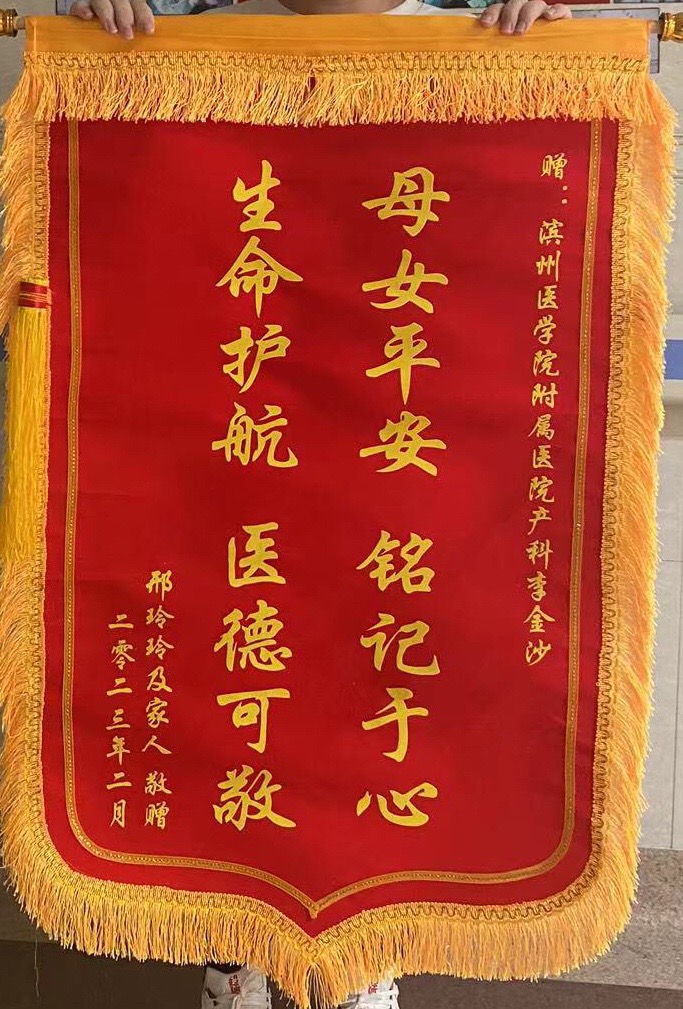 赠：滨州医学院附属医院产科李金沙
母女平安 铭记于心
生命护航 医德可敬
邢玲玲及家人 敬赠
二零二三年二月